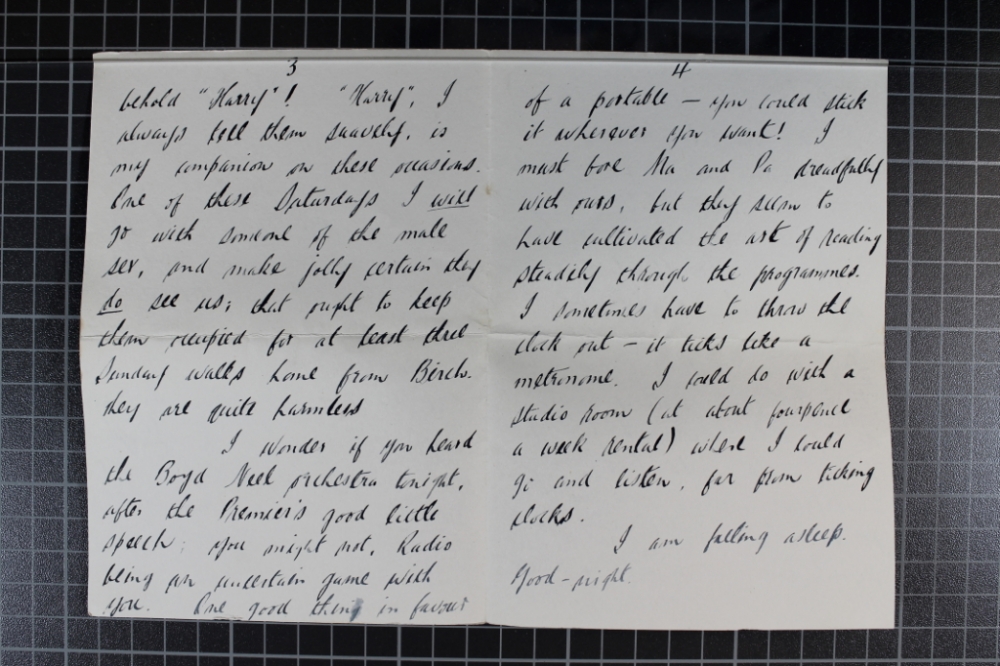 3
behold "Harry"! "Harry", I
always tell them suavely, is
my companion on these occasions.
One of these Saturdays I will
go with someone of the male
sex, and make jolly certain they
do see us; that ought to keep
them occupied for at least three
Sunday walks home from Birch.
they are quite harmless
I wonder if you heard
the Boyd Neel orchestra tonight,
after the Premier's good little
speech; you might not, Radio
being an uncertain game with
you. One good thing in favour
4
of a portable – you could stick
it wherever you want! I
must bore Ma and Pa dreadfully
with ours, but they seem to
have cultivated the art of reading
steadily through the programmes.
I sometimes have to throw the
clock out – it ticks like a
metronome. I could do with a
studio room (at about fourpence
a week rental) where I could
go and listen, far from ticking
clocks.
I am falling asleep.
Good-night.